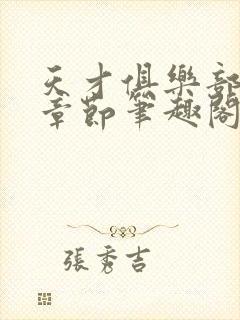 天才俱樂部
章節筆趣閣
張秀吉